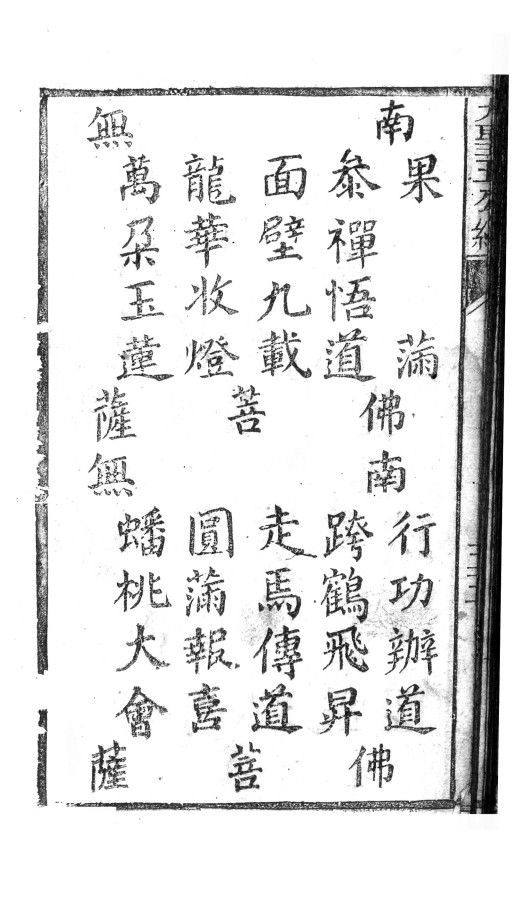 果滿　行功辦道
南　佛南　佛
叅禪悟道　跨鶴飛昇
面壁九載　走馬傳道
菩　菩
龍華收燈　圓滿報喜
萬朶玉蓮　蟠桃大會
無　薩無　薩